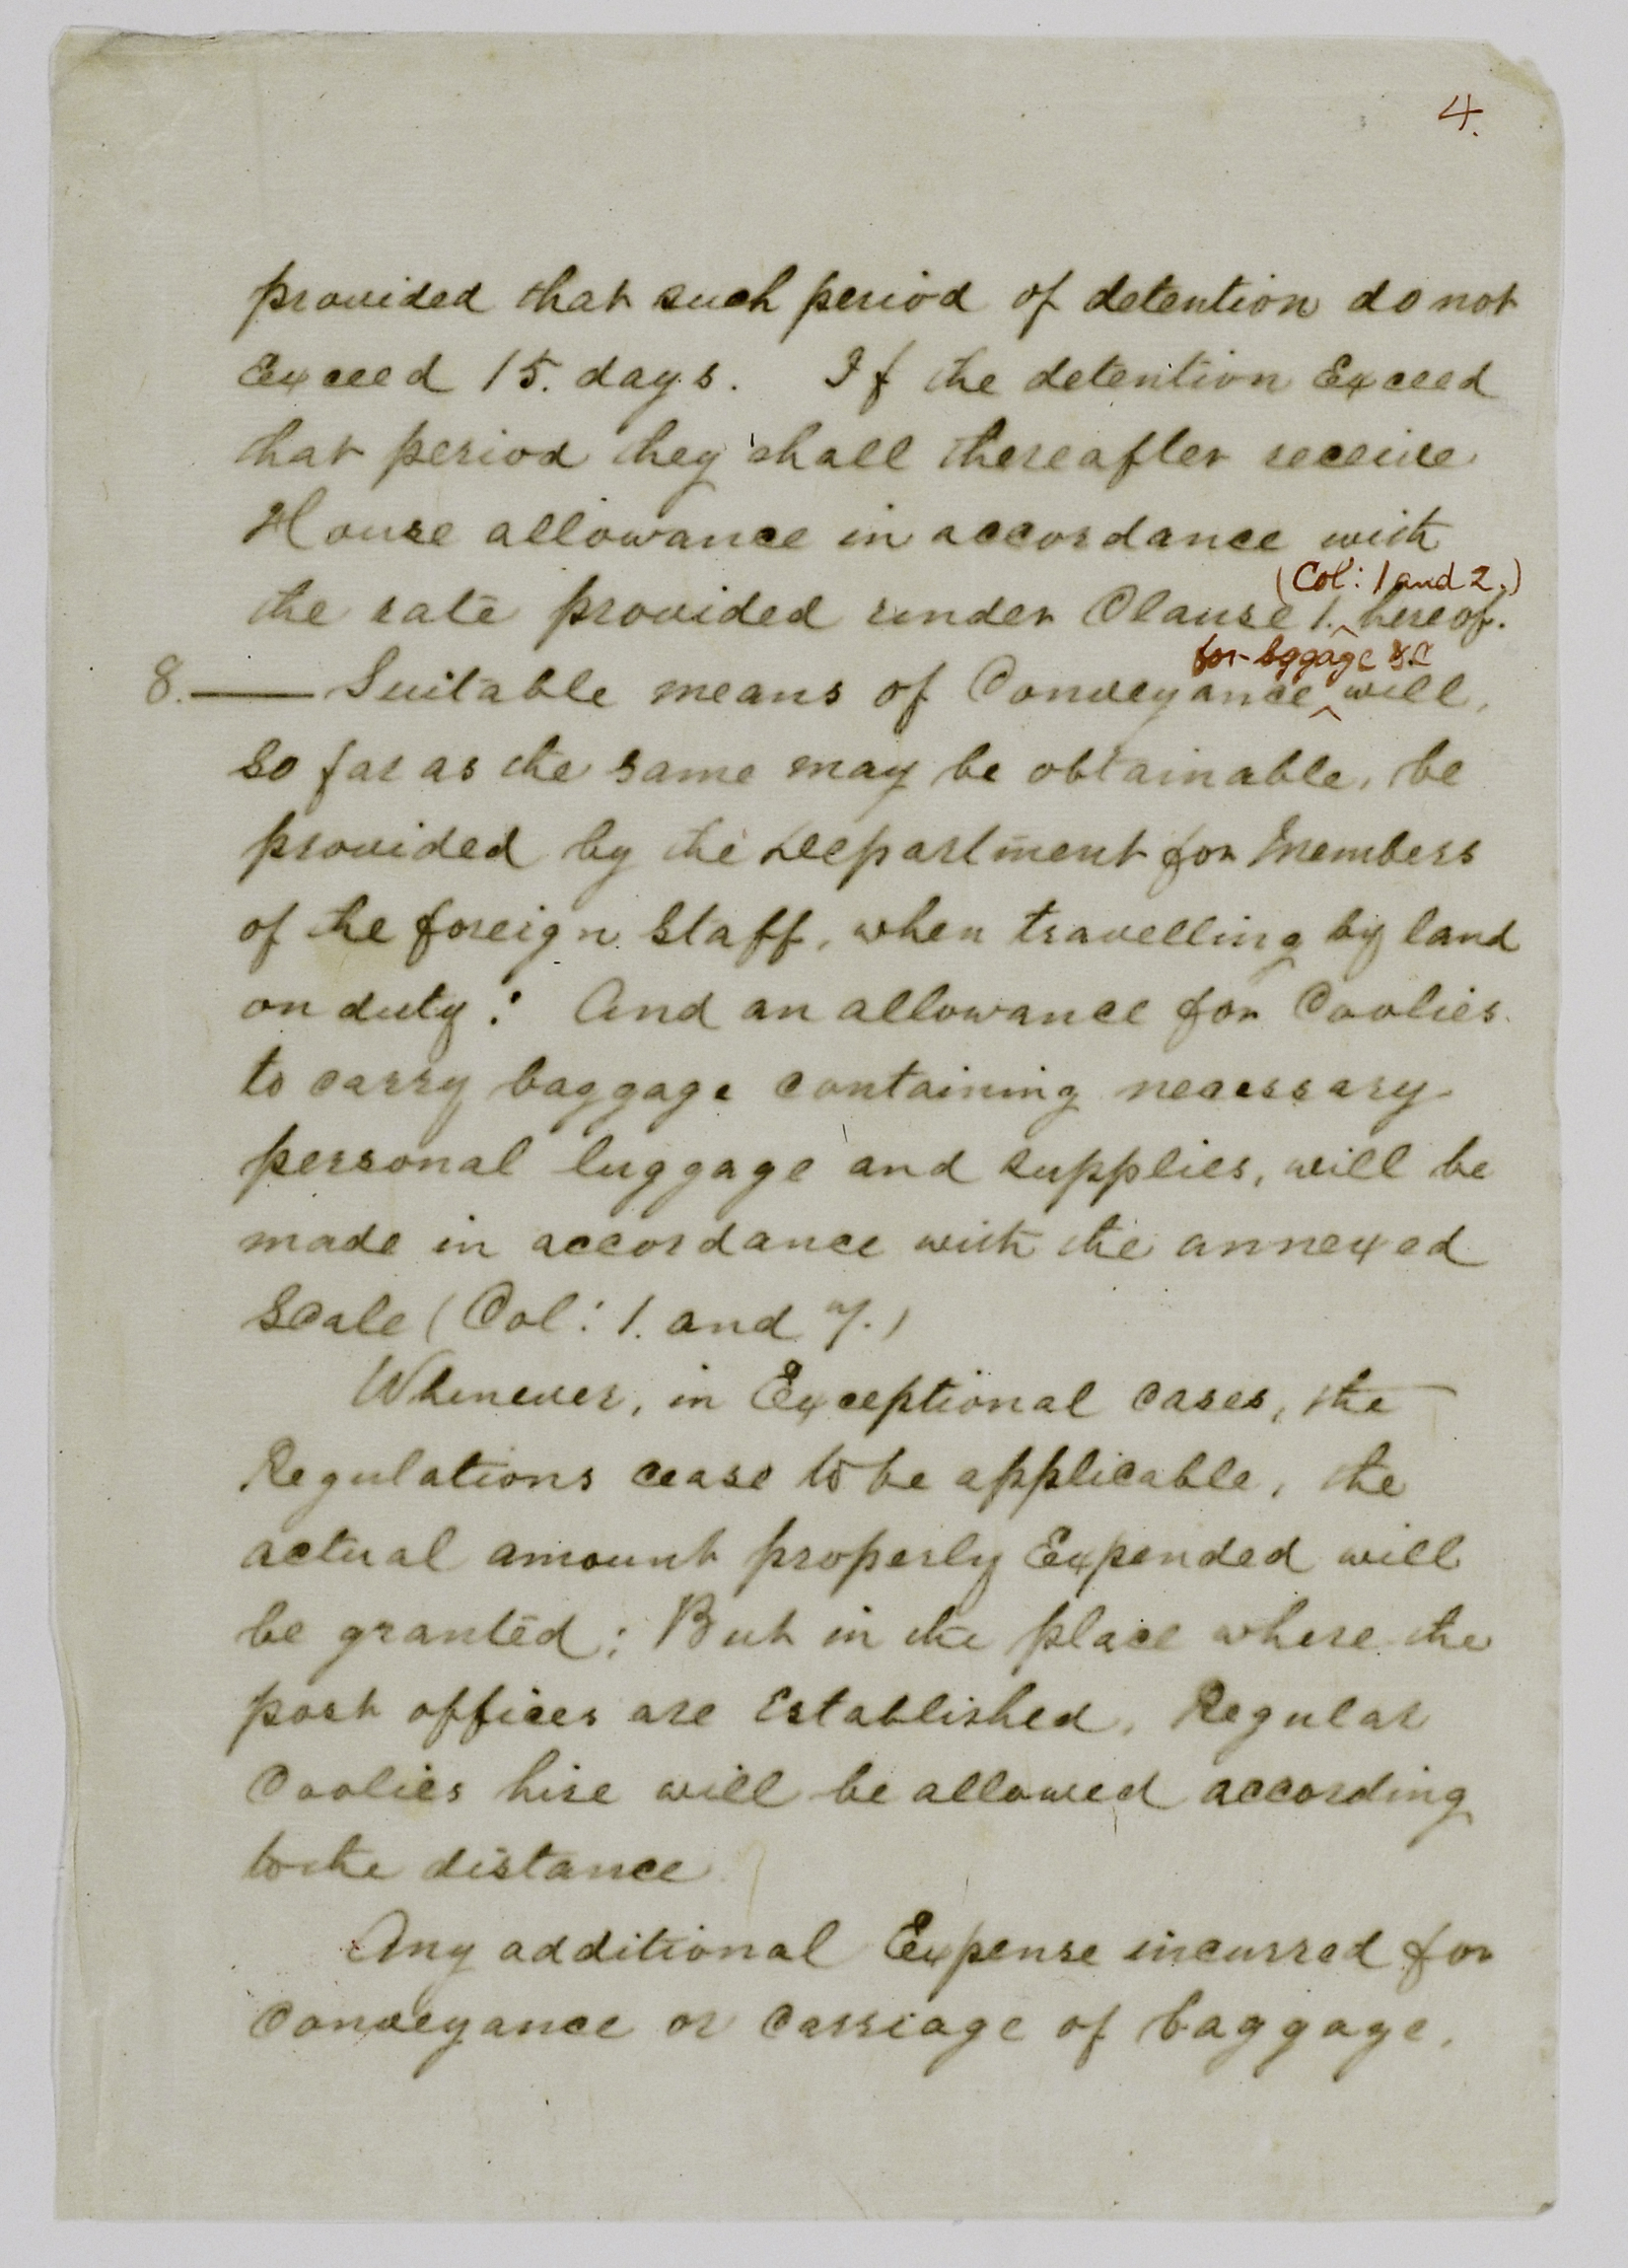 4.
provided that such period of detention do not
Exceed 15. days. If the detention Exceed
that period they shall thereafter receive
House allowance in accordance with
(Col: 1 and 2.)
the rate provided under Clause 1. hereof.
for bggage &c
8. — Suitable means of Conveyance will,
so far as the same may be obtainable, be
provided by the Department for Members
of the foreign Staff, when travelling by land
on duty: And an allowance for Coolies
to carry baggage containing necessary
personal luggage and supplies, will be
made in accordance with the annexed
Scale (Col: 1. and 7.)
Whenever, in Exceptional cases, the
Regulations cease to be applicable, the
actual amount properly Expended will
be granted; But in the place where the
post offices are Established, Regular
Coolies hire will be allowed according
to the distance
Any additional Expense incurred for
Conveyance or Carriage of baggage,